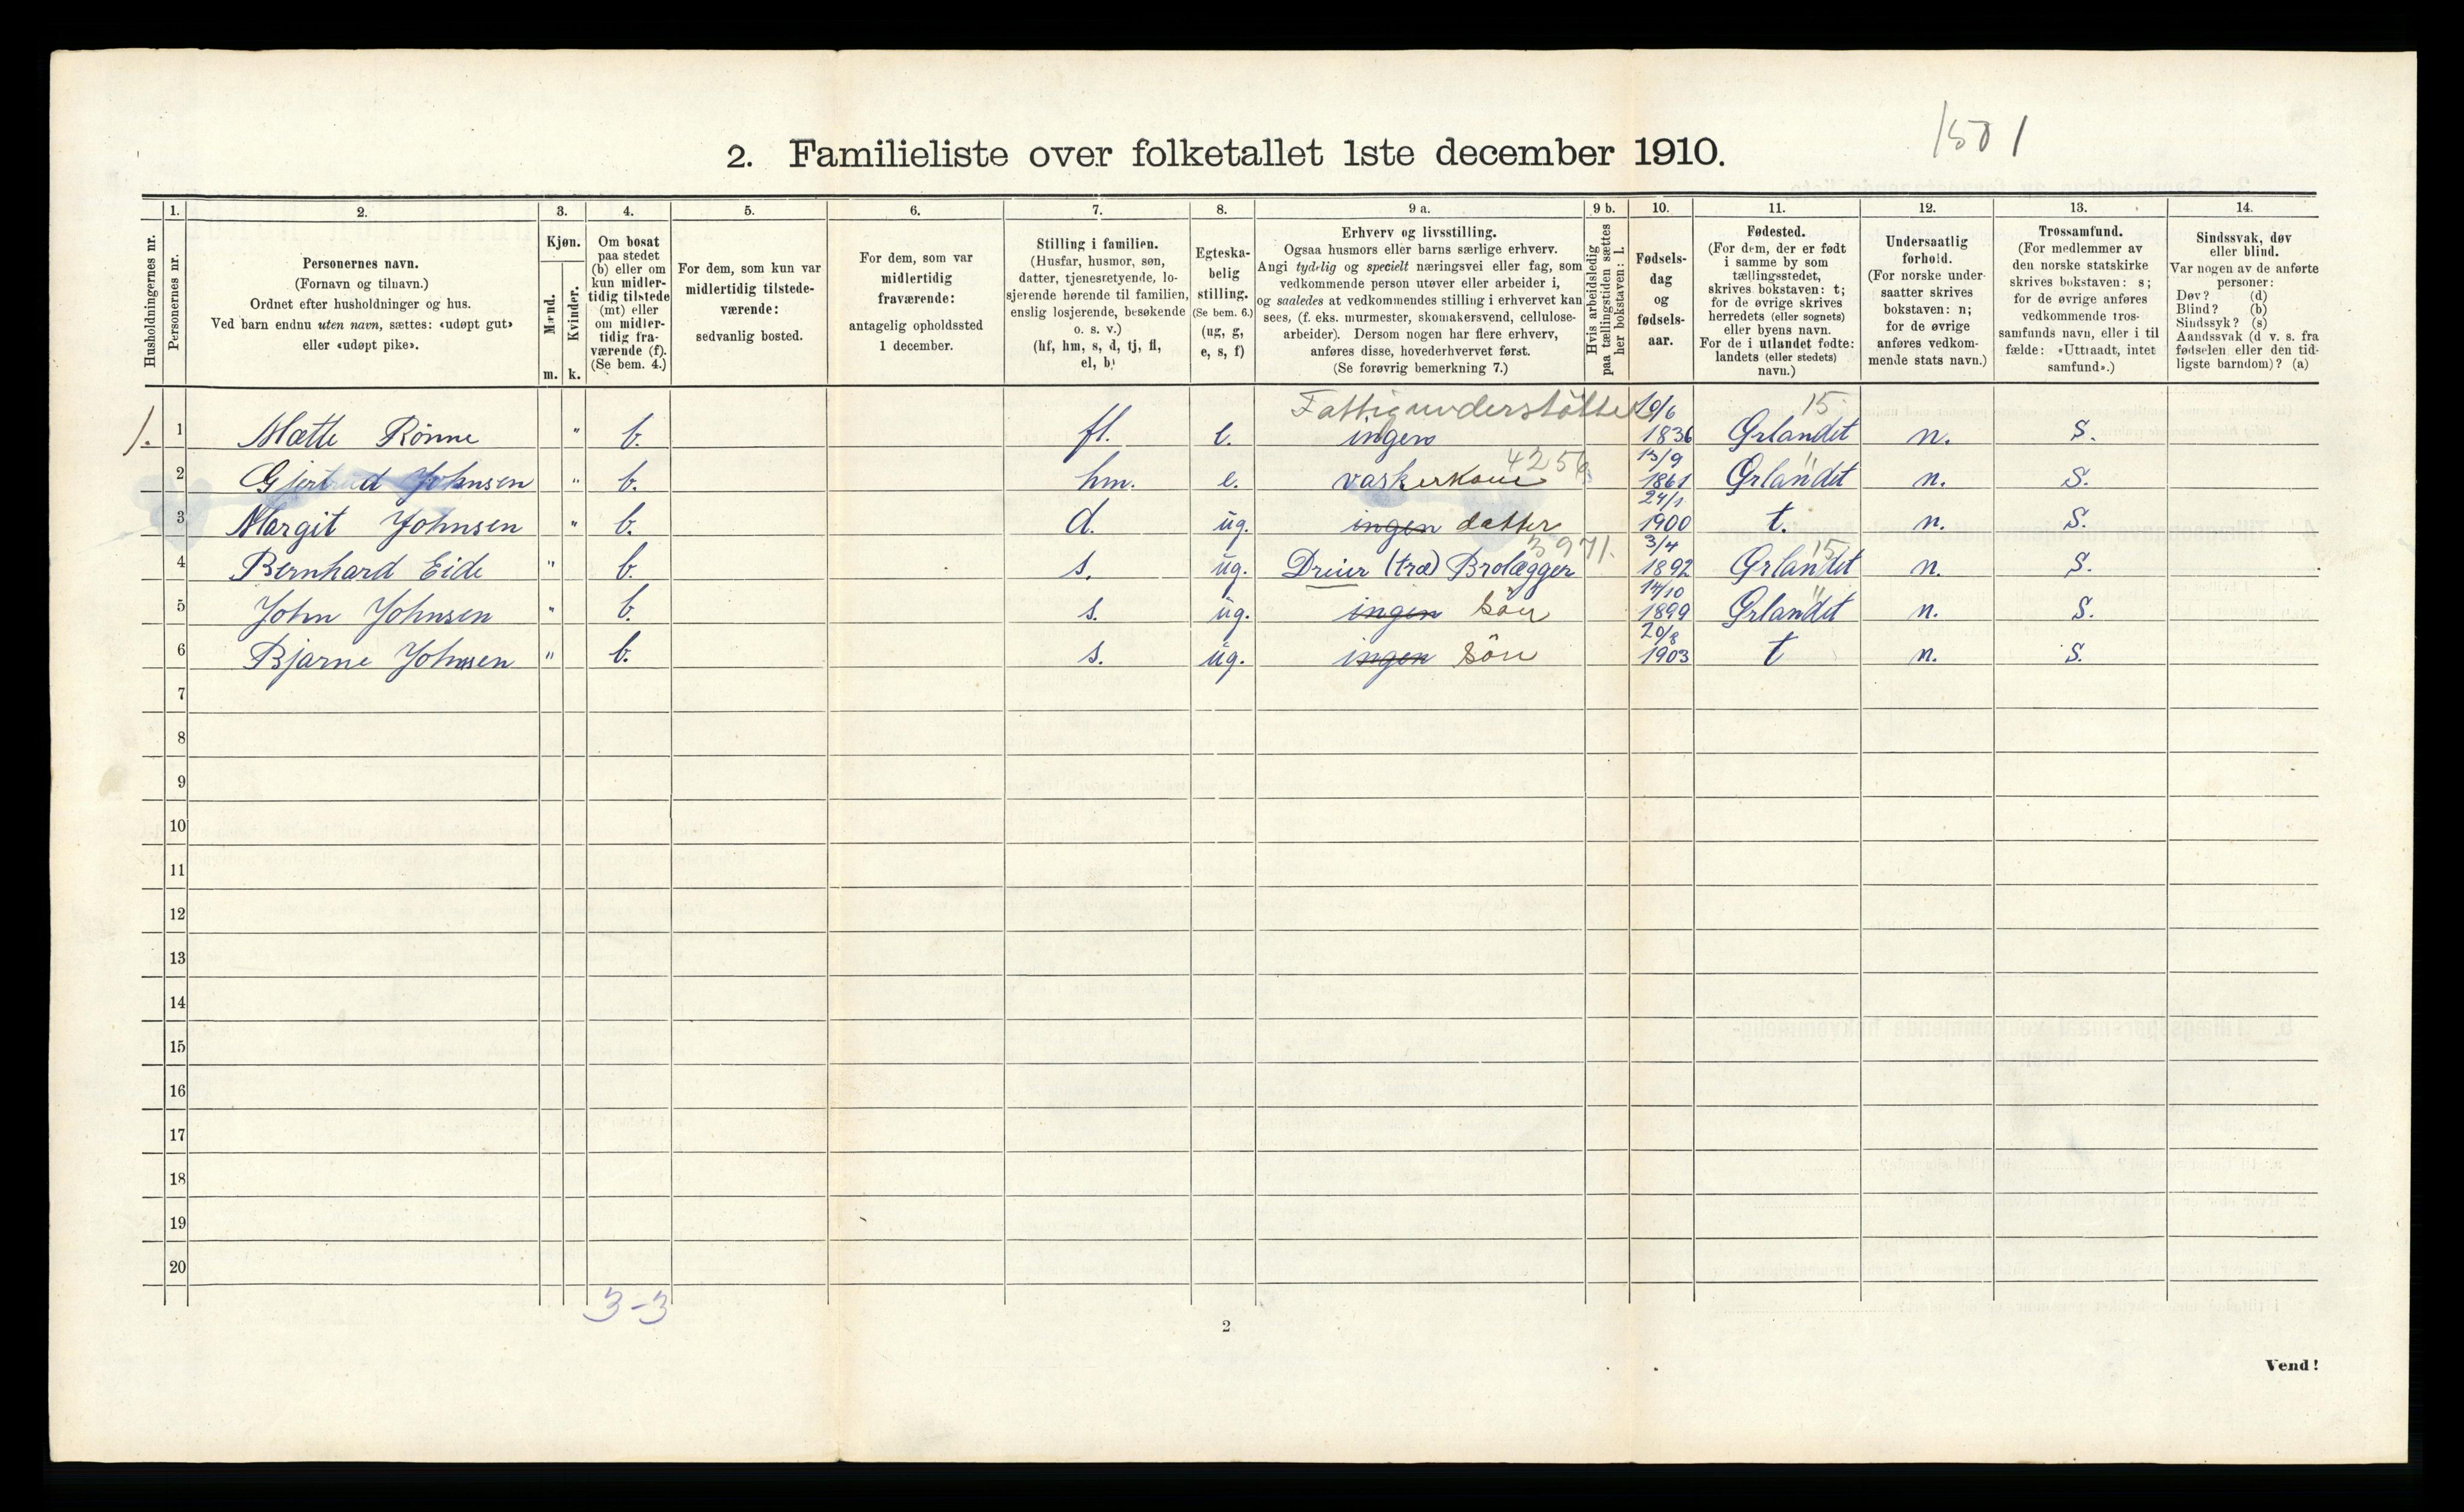 1501
2. Familieliste over folketallet 1ste december 1910.
1. 2. 3. 4. 5. 6. 7. 8. 9 a. 9 b. 10. 11. 12. 13. 14.
Husholdningernes nr.
Personernes nr.
Personernes navn.
(Fornavn og tilnavn.)
Ordnet efter husholdninger og hus.
Ved barn endnu uten navn, sættes: «udøpt gut»
eller «udøpt pike».
Kjøn.
Mænd.
Kvinder.
m. k.
Om bosat
paa stedet
(b) eller om
kun midler-
tidig tilstede
(mt) eller
om midler-
tidig fra-
værende (f).
(Se bem. 4.)
For dem, som kun var
midlertidig tilstede-
værende:
sedvanlig bosted.
For dem, som var
midlertidig
fraværende:
antagelig opholdssted
1 december.
Stilling i familien.
(Husfar, husmor, søn,
datter, tjenestetyende, lo-
sjerende hørende til familien,
enslig losjerende, besøkende
o. s. v.)
(hf, hm, s, d, tj, fl,
el, b)
Egteska-
belig
stilling.
(Se bem. 6.)
(ug, g,
e, s, f)
Erhverv og livsstilling.
Ogsaa husmors eller barns særlige erhverv.
Angi tydelig og specielt næringsvei eller fag, som
vedkommende person utøver eller arbeider i,
og saaledes at vedkommendes stilling i erhvervet kan
sees, (f. eks. murmester, skomakersvend, cellulose-
arbeider). Dersom nogen har flere erhverv,
anføres disse, hovederhvervet først.
(Se forøvrig bemerkning 7.)
Hvis arbeidsledig
paa tællingstiden sættes
her bokstaven: l.
Fødsels-
dag
og
fødsels-
aar.
Fødested.
(For dem, der er født
i samme by som
tællingsstedet,
skrives bokstaven: t;
for de øvrige skrives
herredets (eller sognets)
eller byens navn.
For de i utlandet fødte:
landets (eller stedets)
navn.)
Undersaatlig
forhold.
(For norske under-
saatter skrives
bokstaven: n;
for de øvrige
anføres vedkom-
mende stats navn.)
Trossamfund.
(For medlemmer av
den norske statskirke
skrives bokstaven: s;
for de øvrige anføres
vedkommende tros-
samfunds navn, eller i til
fælde: «Uttraadt, intet
samfund».)
Sindssvak, døv
eller blind.
Var nogen av de anførte
personer:
Døv? (d)
Blind? (b)
Sindssyk? (s)
Aandssvak (d v. s. fra
fødselen eller den tid-
ligste barndom)? (a)
Fattigunderstöttet 10/6 15
1. 1 Mætte Rönne " b. fl. e. ingen 1836 Ørlandet n. s.
4256 13/9 "
2 Gjertrud Johnsen " b. hm. e. vaskerkone 1861 Ørlandet n. s.
24/1
3 Margit Johnsen " b. d. ug. ingen datter 1900 t. n. s.
3971. 3/4 15
4 Bernhard Eide " b. s. ug. Dreier (træ) Brolægger 1892 Ørlandet n. s.
14/10 "
5 John Johnsen " b. s. ug. ingen Sön 1899 Ørlandet n. s.
20/8
6 Bjarne Johnsen " b. s. ug. ingen Sön 1903 t n. s.
7
8
9
10
11
12
13
14
15
16
17
18
19
20
3-3
2
Vend!